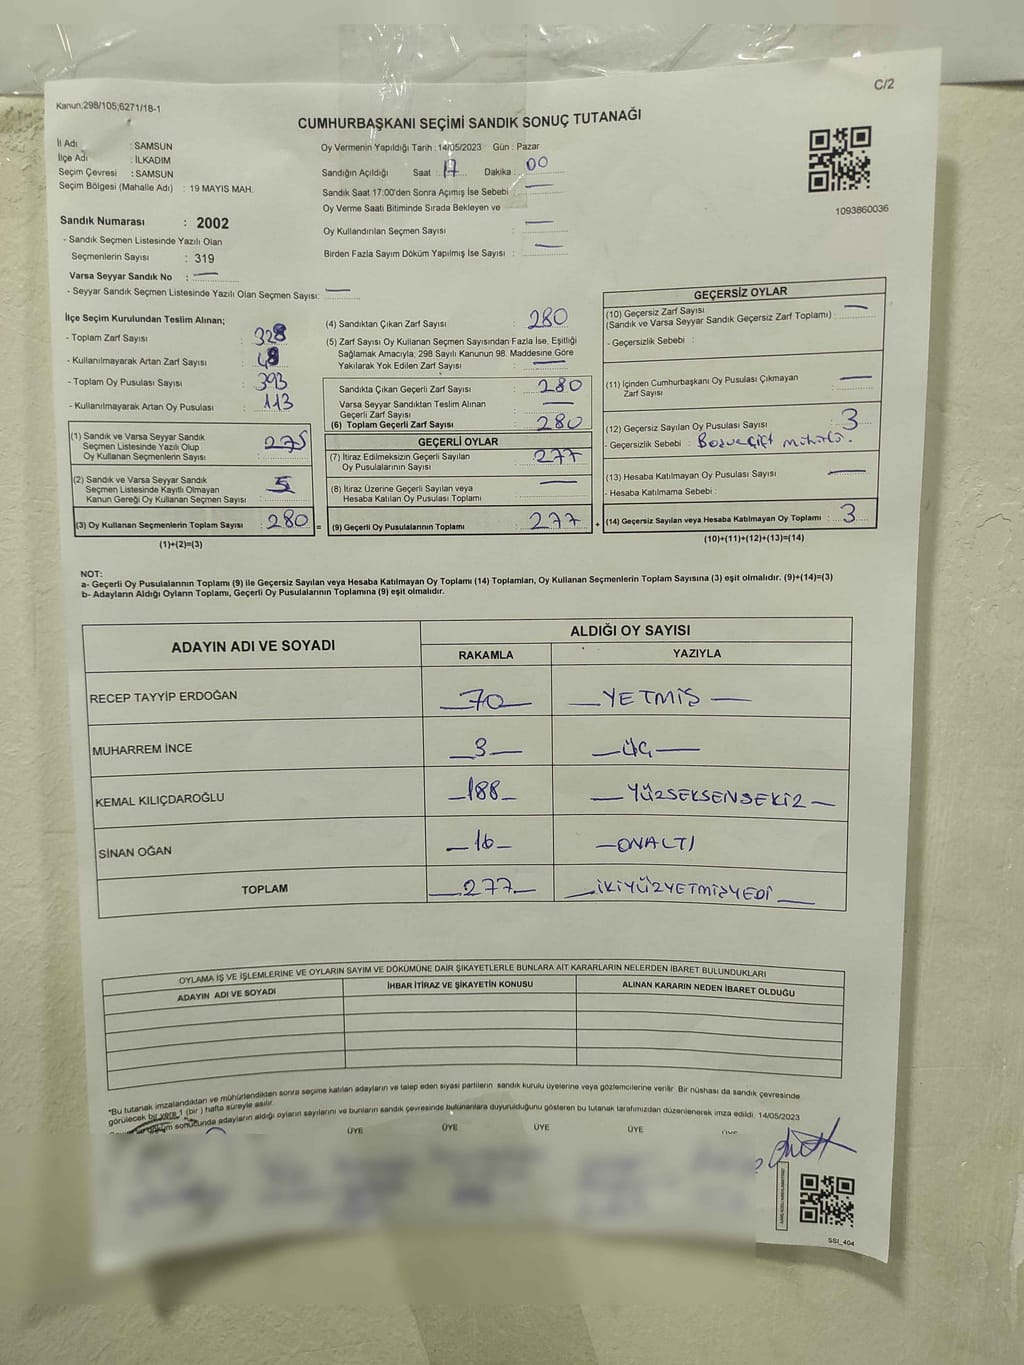 C/2
Kanun:298/105;6271/18-1
CUMHURBAŞKANI SEÇİMİ SANDIK SONUÇ TUTANAĞI
İl Adı : SAMSUN
İlçe Adı : İLKADIM
Seçim Çevresi : SAMSUN
Seçim Bölgesi (Mahalle Adı) : 19 MAYIS MAH.
Sandık Numarası : 2002
- Sandık Seçmen Listesinde Yazılı Olan
Seçmenlerin Sayısı : 319
Varsa Seyyar Sandık No :
- Seyyar Sandık Seçmen Listesinde Yazılı Olan Seçmen Sayısı:
Oy Vermenin Yapıldığı Tarih : 14/05/2023 Gün : Pazar
Sandığın Açıldığı Saat : 17 Dakika : 00
Sandık Saat 17:00'den Sonra Açımış İse Sebebi :
Oy Verme Saati Bitiminde Sırada Bekleyen ve
Oy Kullandırılan Seçmen Sayısı :
Birden Fazla Sayım Döküm Yapılmış İse Sayısı :
1093860036
İlçe Seçim Kurulundan Teslim Alınan;
- Toplam Zarf Sayısı : 328
- Kullanılmayarak Artan Zarf Sayısı : 48
- Toplam Oy Pusulası Sayısı : 393
- Kullanılmayarak Artan Oy Pusulası : 113
(1) Sandık ve Varsa Seyyar Sandık
Seçmen Listesinde Yazılı Olup
Oy Kullanan Seçmenlerin Sayısı : 275
(2) Sandık ve Varsa Seyyar Sandık
Seçmen Listesinde Kayıtlı Olmayan
Kanun Gereği Oy Kullanan Seçmen Sayısı : 5
(3) Oy Kullanan Seçmenlerin Toplam Sayısı : 280 =
(1)+(2)=(3)
(4) Sandıktan Çıkan Zarf Sayısı : 280
(5) Zarf Sayısı Oy Kullanan Seçmen Sayısından Fazla İse, Eşitliği
Sağlamak Amacıyla; 298 Sayılı Kanunun 98. Maddesine Göre
Yakılarak Yok Edilen Zarf Sayısı :
Sandıkta Çıkan Geçerli Zarf Sayısı : 280
Varsa Seyyar Sandıktan Teslim Alınan
Geçerli Zarf Sayısı :
(6) Toplam Geçerli Zarf Sayısı : 280
GEÇERLİ OYLAR
(7) İtiraz Edilmeksizin Geçerli Sayılan
Oy Pusulalarının Sayısı : 277
(8) İtiraz Üzerine Geçerli Sayılan veya
Hesaba Katılan Oy Pusulası Toplamı :
(9) Geçerli Oy Pusulalarının Toplamı : 277 +
GEÇERSİZ OYLAR
(10) Geçersiz Zarf Sayısı
(Sandık ve Varsa Seyyar Sandık Geçersiz Zarf Toplamı) :
- Geçersizlik Sebebi :
(11) İçinden Cumhurbaşkanı Oy Pusulası Çıkmayan
Zarf Sayısı :
(12) Geçersiz Sayılan Oy Pusulası Sayısı : 3
- Geçersizlik Sebebi : Boz ve çift mühürlü.
(13) Hesaba Katılmayan Oy Pusulası Sayısı :
- Hesaba Katılmama Sebebi :
(14) Geçersiz Sayılan veya Hesaba Katılmayan Oy Toplamı : 3
(10)+(11)+(12)+(13)=(14)
NOT:
a- Geçerli Oy Pusulalarının Toplamı (9) ile Geçersiz Sayılan veya Hesaba Katılmayan Oy Toplamı (14) Toplamları, Oy Kullanan Seçmenlerin Toplam Sayısına (3) eşit olmalıdır. (9)+(14)=(3)
b- Adayların Aldığı Oyların Toplamı, Geçerli Oy Pusulalarının Toplamına (9) eşit olmalıdır.
ADAYIN ADI VE SOYADI
ALDIĞI OY SAYISI
RAKAMLA YAZIYLA
RECEP TAYYİP ERDOĞAN 70 YETMİŞ
MUHARREM İNCE 3 ÜÇ
KEMAL KILIÇDAROĞLU 188 YÜZSEKSENSEKİZ
SİNAN OĞAN 16 ONALTI
TOPLAM 277 İKİYÜZYETMİŞYEDİ
OYLAMA İŞ VE İŞLEMLERİNE VE OYLARIN SAYIM VE DÖKÜMÜNE DAİR ŞİKAYETLERLE BUNLARA AİT KARARLARIN NELERDEN İBARET BULUNDUKLARI
ADAYIN ADI VE SOYADI İHBAR İTİRAZ VE ŞİKAYETİN KONUSU ALINAN KARARIN NEDEN İBARET OLDUĞU
*Bu tutanak imzalandıktan ve mühürlendikten sonra seçime katılan adayların ve talep eden siyasi partilerin sandık kurulu üyelerine veya gözlemcilerine verilir. Bir nüshası da sandık çevresinde
görülecek bir yere 1 (bir ) hafta süreyle asılır.
sonucunda adayların aldığı oyların sayılarını ve bunların sandık çevresinde bulunanlara duyurulduğunu gösteren bu tutanak tarafımızdan düzenlenerek imza edildi. 14/05/2023
ÜYE ÜYE ÜYE ÜYE
SSI_404